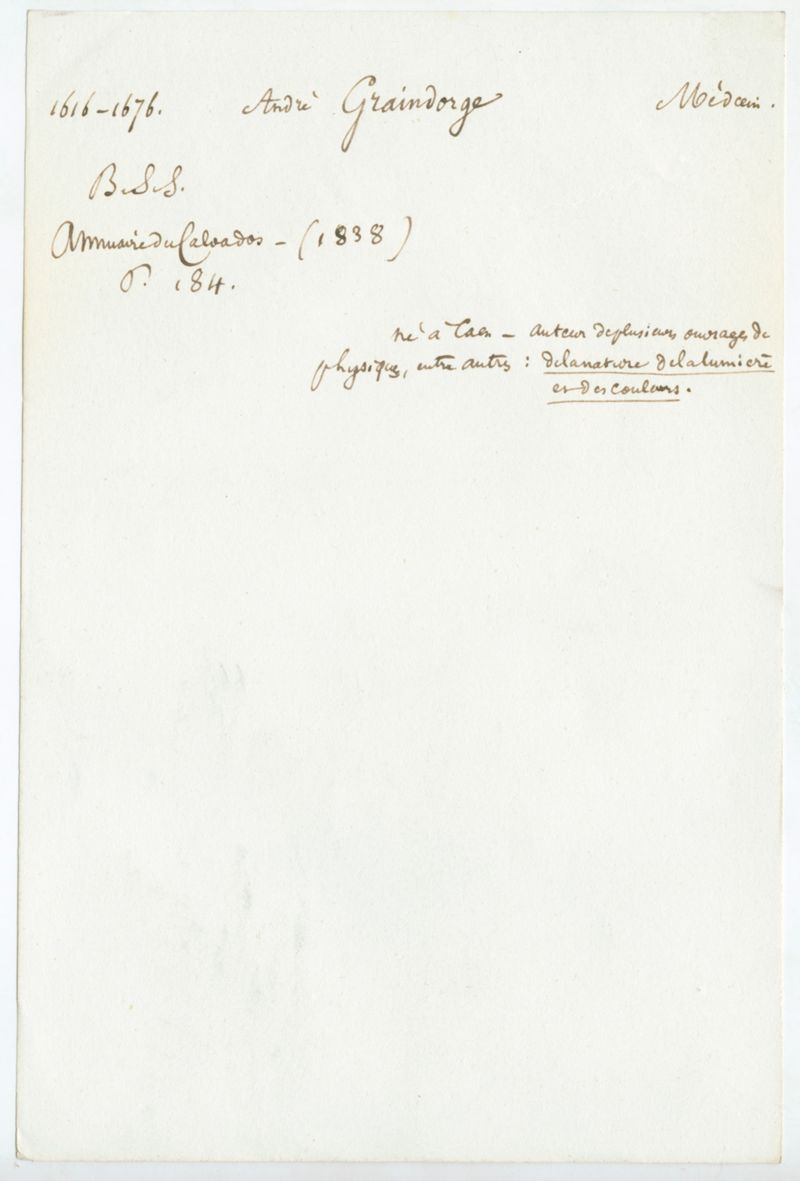 1616-1676. André Graindorge Médecin.
B.S.S.
Annuaire du Calvados - (1838)
P. 184.
né à Caen - auteur de plusieurs ouvrages de
physique, entre autres : de la nature de la lumière
et des couleurs.